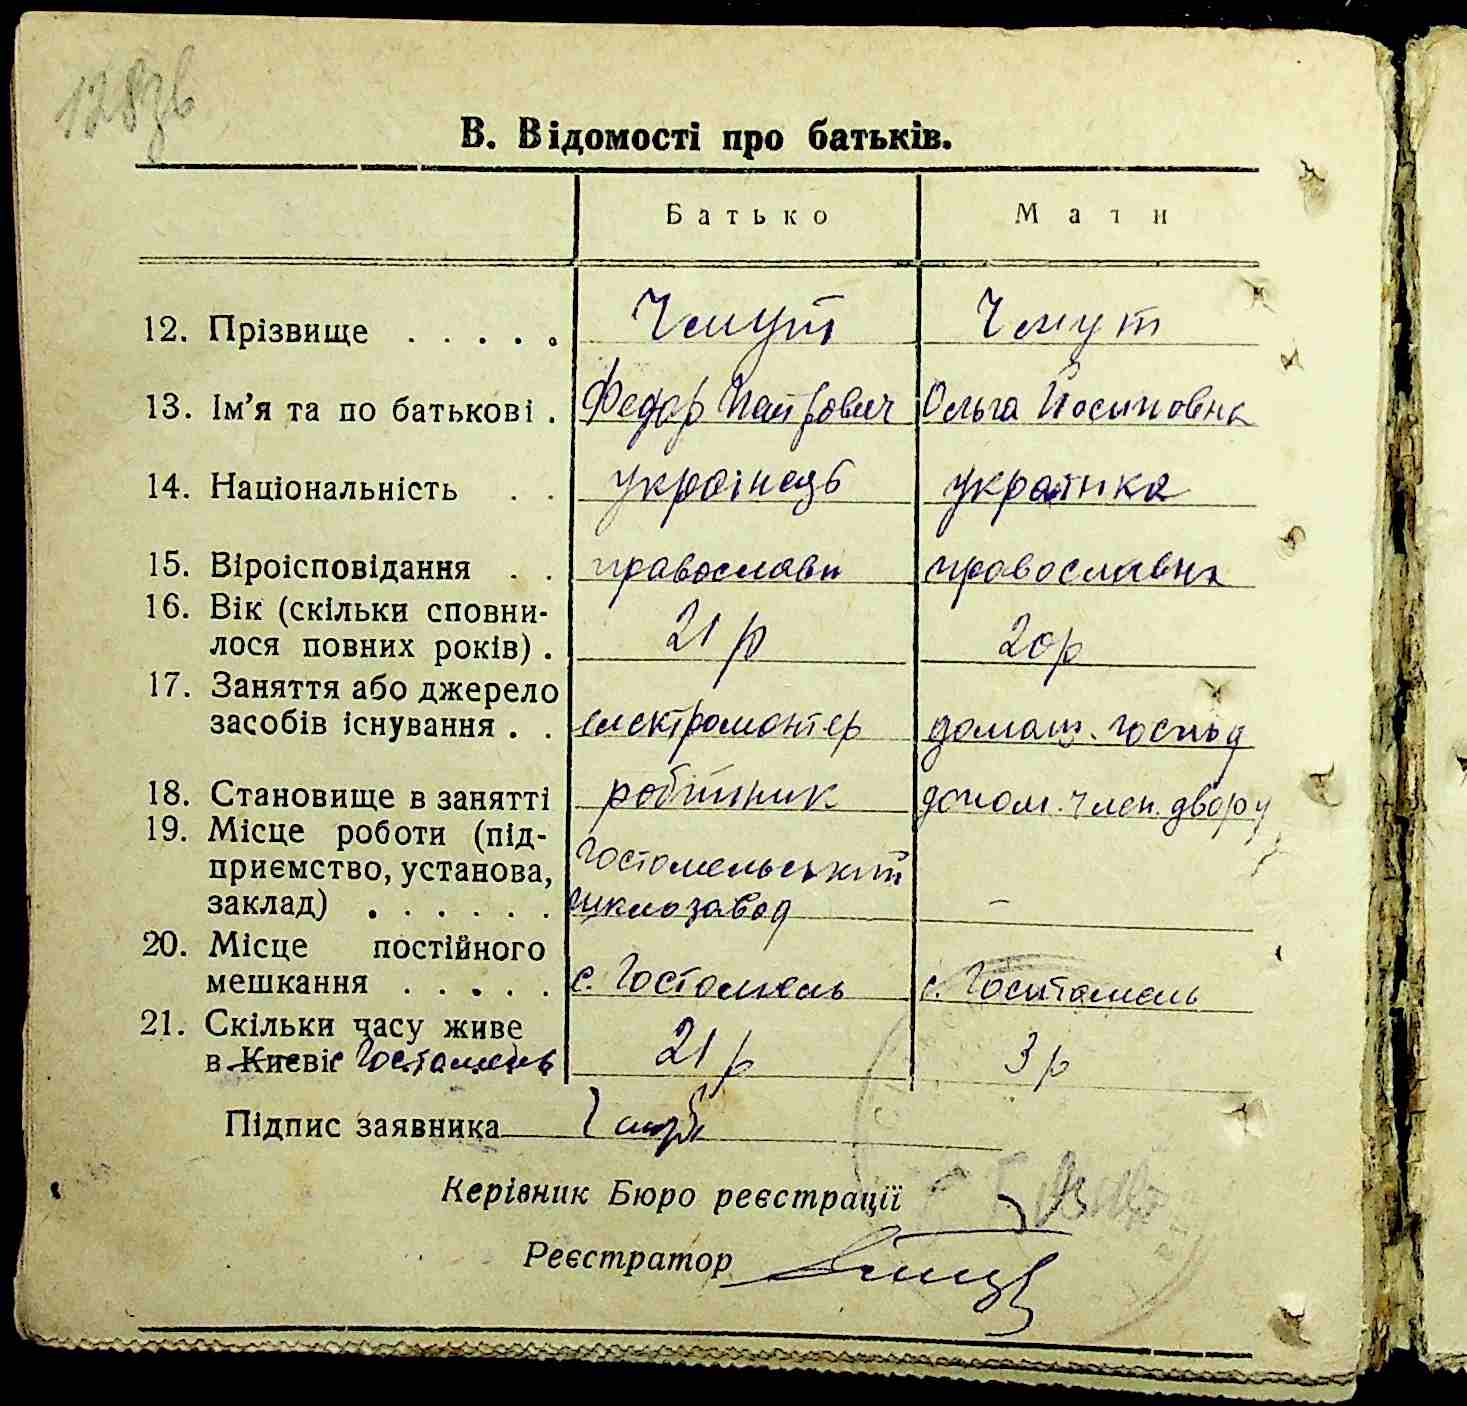 128зв
В. Відомості про батьків.
Батько Мати
12. Прізвище . . . . . Чмут Чмут
13. Ім’я та по батькові . Федор Петрович Ольга Йосиповна
14. Національність . . українець українка
15. Віроісповідання . . православн православна
16. Вік (скільки сповни-
лося повних років) . 21 р 20 р
17. Заняття або джерело
засобів існування . . електромонтер домаш. господ
18. Становище в занятті робітник допом. член. двору
19. Місце роботи (під- Гостомельський
приємство, установа, склозавод
заклад) . . . . . . –
20. Місце постійного
мешкання . . . . . с. Гостомель с. Гостомель
21. Скільки часу живе
в Києві Гостомель 21 р 3 р
Підпис заявника Чмут
Керівник Бюро реєстрації
Реєстратор